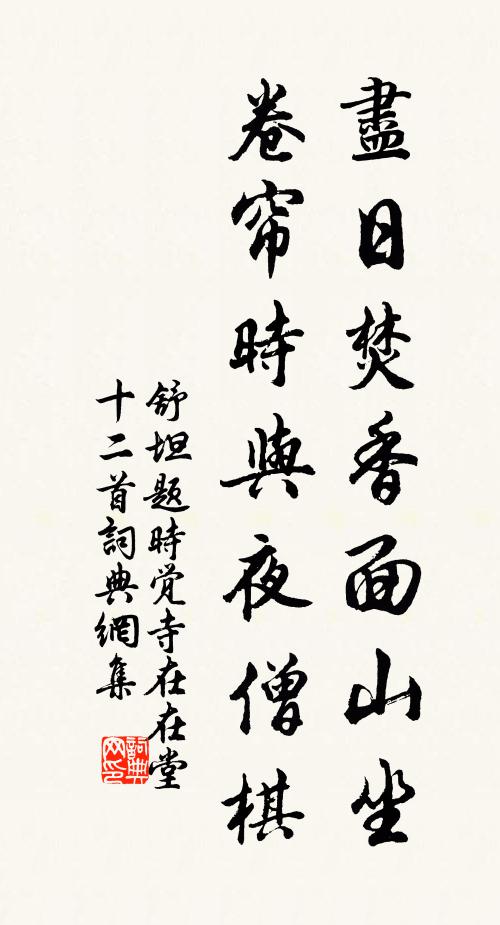 盡日焚香面山坐
卷帘時與夜僧棋
舒坦题時觉寺在在堂
十二首詞典網集
詞典网印